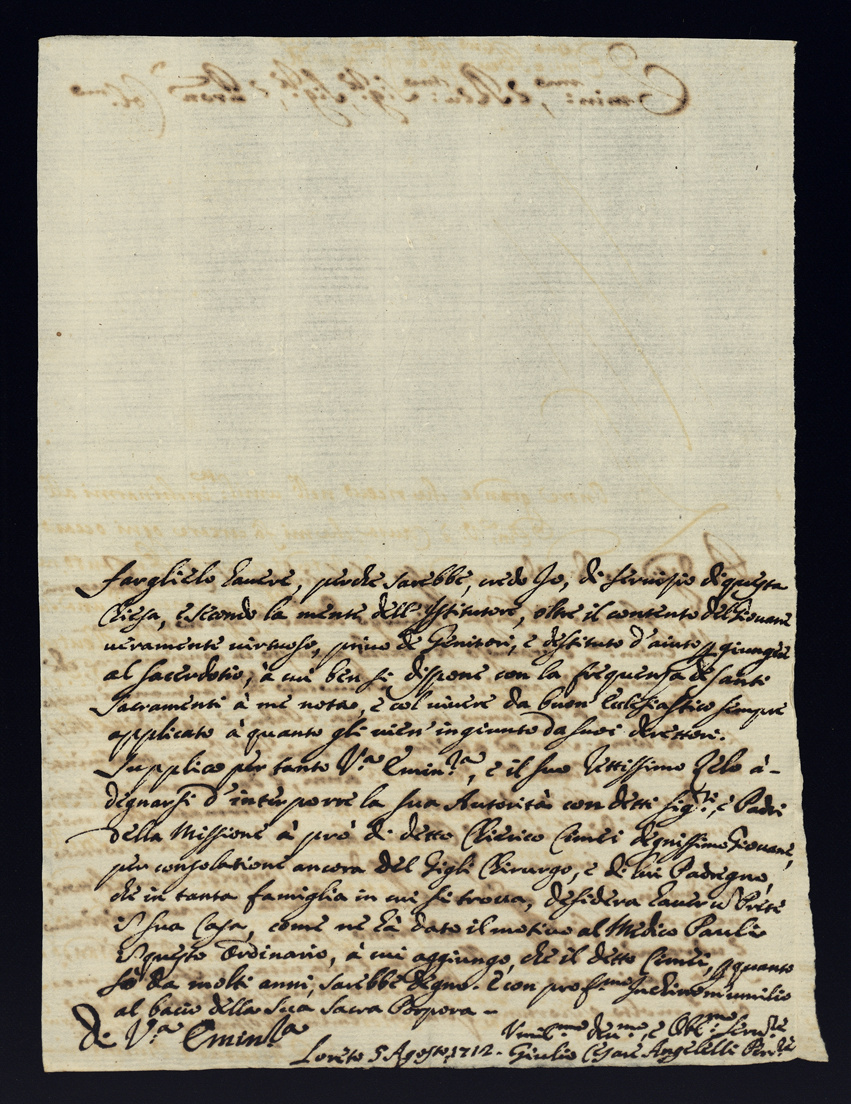 farglielo havere, perche sarebbe, credo Io, di servizio di questa
Chiesa, e secondo la mente dell'Istitutore, oltre il contento del Giovane
veramente virtuoso, privo de Genitori, e destituto d'aiuto p giungere
al sacerdotio, à cui ben si dispone con la frequenza de santi
Sacramenti à me nota, e col vivere da buon Ecclesiastico sempre
applicato à quanto gli vien' ingiunto da suoi direttori.
Supplico per tanto V.ra Emin.za, e il suo Rettissimo Zelo à-
degnarsi d'interporre la sua Autorità con detti Sig.ri, e Padri
della Missione à prò di detto Chierico Cimei degnissimo Giovane,
per consolatione ancora del Gigli Chirurgo, e di lui Padregno,
che in tanta famiglia in cui si trova, desidera haver un Prete
in sua Casa, come ne hà dato il motivo al Medico Pauli
in questo Ordinario, à cui aggiungo, che il detto Cimei, p quanto
sò da molti anni, sarebbe degno. E con prof.mo Inchino m'umilio
al bacio della Sua Sacra Porpora -
Di V.ra Emin.za
Umil.mo dev.mo, e Obl.mo Serv.re
Loreto 5 Agosto 1712 - Giulio Cesare Angelelli